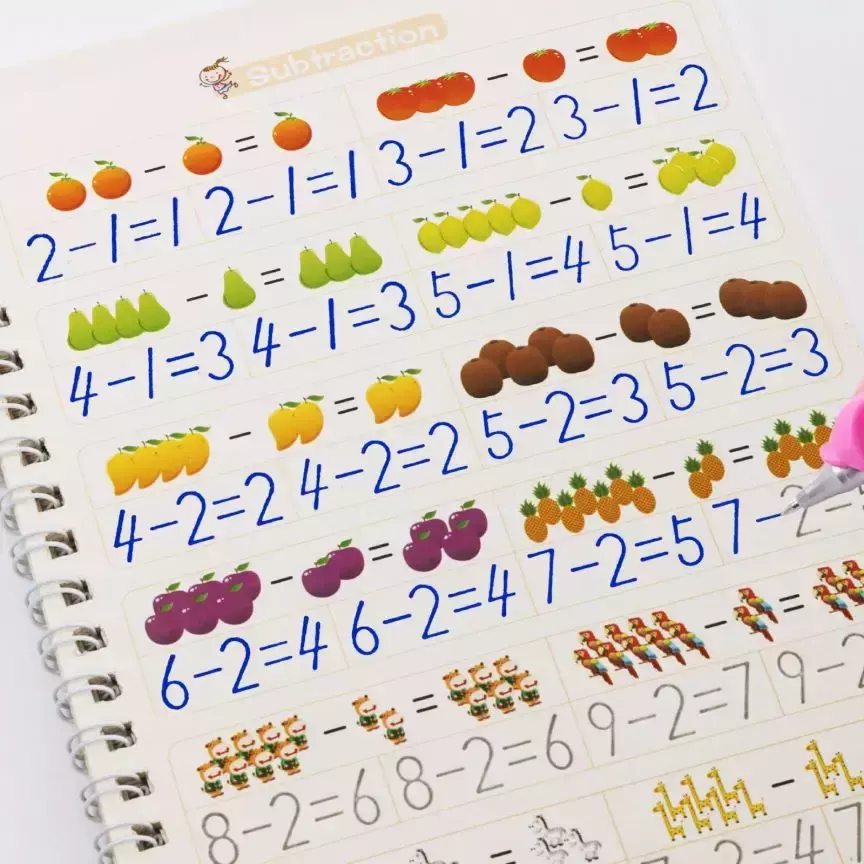 Subtraction
- = - =
2-1=1 2-1=1 3-1=2 3-1=2
- = - =
4-1=3 4-1=3 5-1=4 5-1=4
- = - =
4-2=2 4-2=2 5-2=3 5-2=3
- = - =
6-2=4 6-2=4 7-2=5 7-2-
- = - =
8-2=6 8-2=6 9-2=7 9-2
= -
-2=4